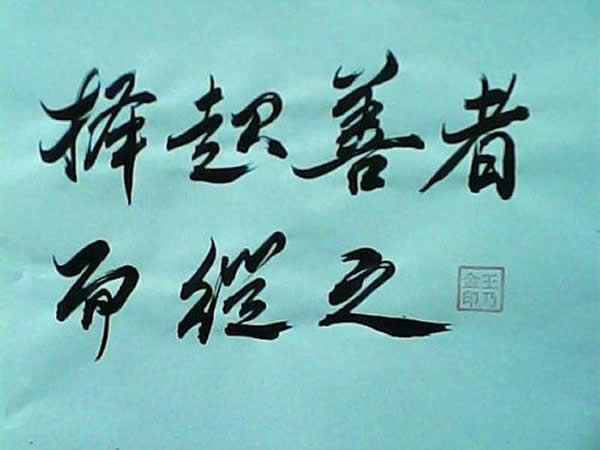 择起善者
而從之
王乃
金印